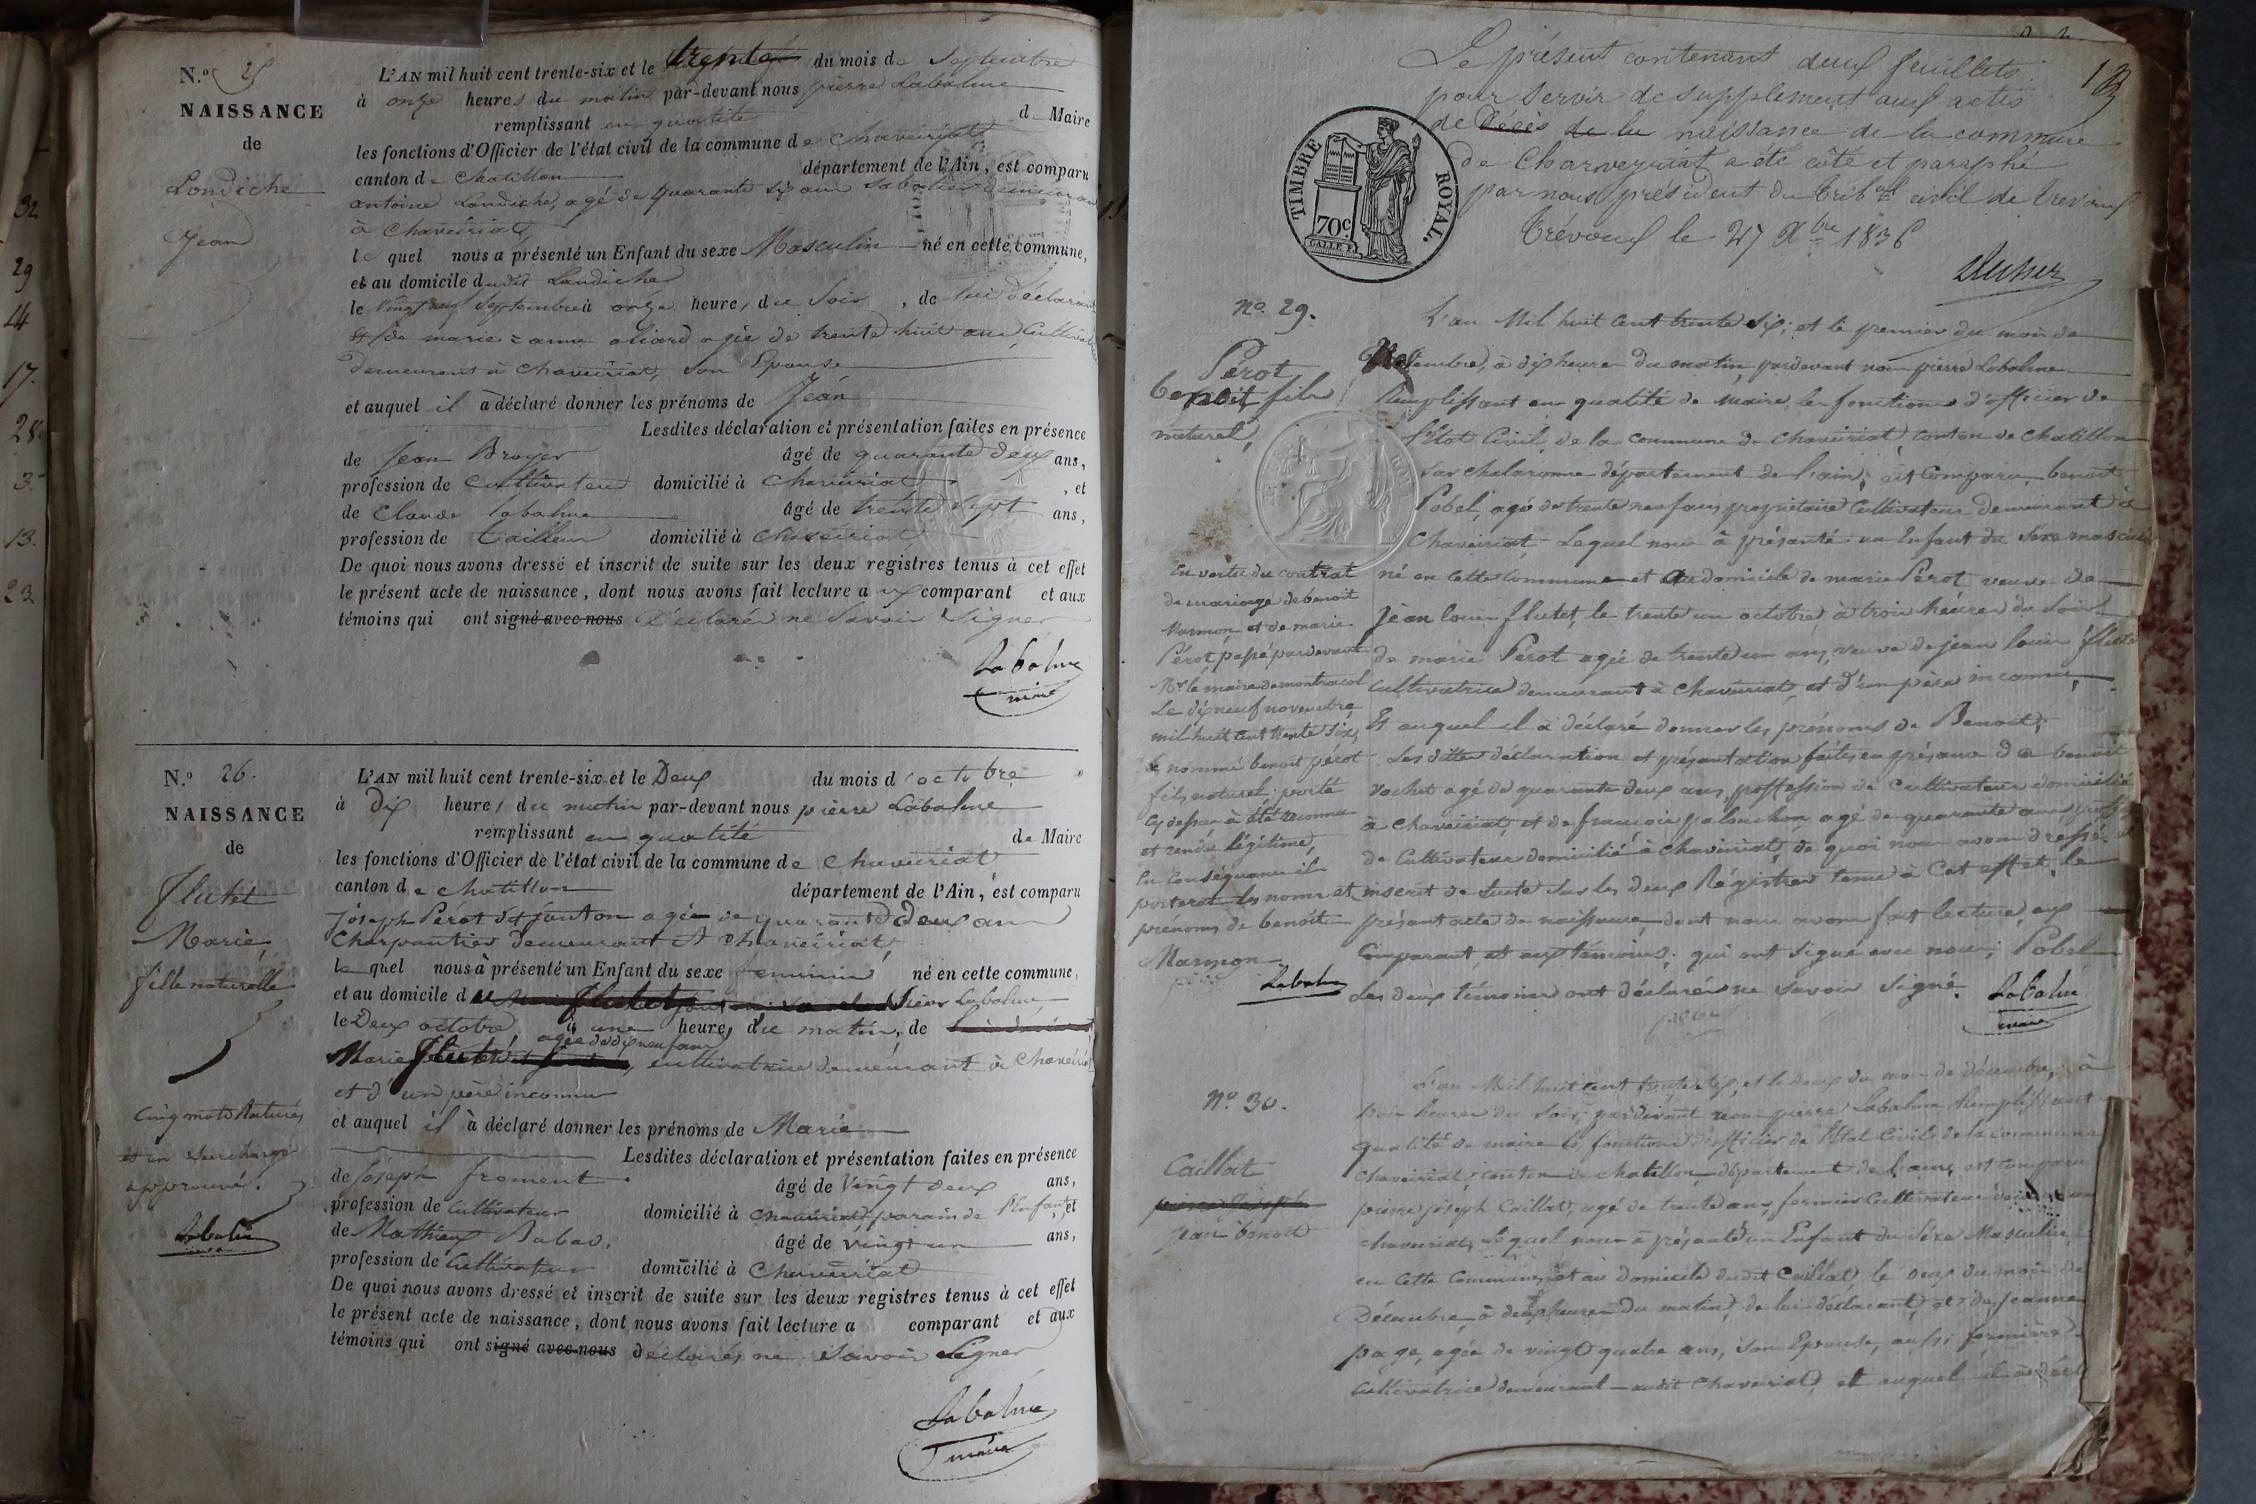 32
29
14
17.
28.
3.
13.
23
N.o 25
NAISSANCE
de
Landiche
Jean
L'AN mil huit cent trente-six et le trente du mois de Septembre
à onze heures du matin par-devant nous pierre Labalme
remplissant en qualité de Maire
les fonctions d'Officier de l'état civil de la commune de Chaveiriat
canton de Chatillon département de l'Ain, est comparu
antoine Landiche, agé de quarante six ans Sabotier demeurant
à Chaveiriat,
le quel nous a présenté un Enfant du sexe Masculin né en cette commune,
et au domicile dudit Landiche
le vingt neuf Septembre à onze heures du Soir, de lui déclarant
et de marie anne oliard agée de trente huit ans, Cultivatrice
demeurant à Chaveiriat, son Epouse
et auquel il a déclaré donner les prénoms de Jean
Lesdites déclaration et présentation faites en présence
de Jean Broyer âgé de quarante deux ans,
profession de Cultivateur domicilié à Chaveiriat, et
de Claude Labalme âgé de trente sept ans,
profession de Tailleur domicilié à Chaveiriat
De quoi nous avons dressé et inscrit de suite sur les deux registres tenus à cet effet
le présent acte de naissance, dont nous avons fait lecture aux comparant et aux
témoins qui ont signé avec nous Déclaré ne Savoir Signer
Labalme
maire
N.o 26.
NAISSANCE
de
Flutet
Marie,
fille naturelle
Cinq mots raturés
et un surchargé
approuvé.
Labalme
L'AN mil huit cent trente-six et le Deux du mois d'octobre
à Dix heures du matin par-devant nous pierre Labalme
remplissant en qualité de Maire
les fonctions d'Officier de l'état civil de la commune de Chaveiriat
canton de Chatillon département de l'Ain, est comparu
Joseph Pérot dit janton agée de quarante deux ans
Charpantier demeurant à Chaveiriat,
le quel nous à présenté un Enfant du sexe feminin né en cette commune,
et au domicile de Sieur Labalme
le Deux octobre à une heure, du matin, de
agée de dix neuf ans
Marie Flutet, cultivatrice demeurant à Chaveiriat
et d'un père inconnu
et auquel il à déclaré donner les prénoms de Marie
Lesdites déclaration et présentation faites en présence
de Joseph froment âgé de Vingt deux ans,
profession de Cultivateur domicilié à Chaveiriat, parain de l'Enfant, et
de Mathieu Babad, âgé de vingt un ans,
profession de Cultivateur domicilié à Chaveiriat
De quoi nous avons dressé et inscrit de suite sur les deux registres tenus à cet effet
le présent acte de naissance, dont nous avons fait lecture a comparant et aux
témoins qui ont signé avec nous déclarés ne Savoir Signer
Labalme
maire
Le présent contenant deux feuillets
pour servir de supplement aux actes
de Décès de la naissance de la commune
de Charveyriat a été coté et paraphé
par nous président du trib.al civil de trevoux
Trévoux le 27 Xbre 1836
13
TIMBRE ROYAL.
70c
No. 29.
Pérot
benoit fils
naturel,
L'an Mil huit Cent trente Six, et le premier du mois de
Novembre, à dix heures du matin, pardevant nous pierre Labalme
Remplissant en qualité de maire, les fonctions d'officier de
l'Etat Civil, de la commune de Chaveiriat, canton de Chatillon
sur Chalaronne département de l'ain, est Comparu benoit
Pobel, agé de trente neuf ans, propriétaire Cultivateur demeurant à
Chaveiriat, Lequel nous à présenté un Enfant du Sexe masculin
né en cette commune et au domicile de marie Pérot veuve de
jean louis flutet, le trente un octobre, à trois heures du Soir,
de marie Pérot agée de trente un ans, veuve de jean louis flutet
cultivatrice demeurant à Chaveiriat, et d'un père inconnu,
Et auquel il à déclaré donner les prénoms de Benoit,
Les dittes déclaration et présentation faites en présence de benoit
Vochot agé de quarante deux ans, proffession de Cultivateur domicilié
à Chaveiriat, et de francois palanchon agé de quarante ans proff
de Cultivateur domicilié à Chaveiriat, de quoi nous avons dressé
et inscrit de Suite Sur les deux Régistres tenus à Cet effet, le
présent acte de naissance, dont nous avons fait lecture, aux
Comparant, et aux témoins, qui ont Signé avec nous; Pobel
Les deux témoins ont déclarés ne Savoir Signé.
Labalme
maire
En vertu du contrat
de mariage de benoit
Marmon et de marie
Pérot passé pardevant
Mr le maire de montracol
Le dix neuf novembre
mil huit cent trente six,
le nommé benoit pérot
fils naturel porté
Ci dessus à été reconnu
et rendu légitime,
En Conséquence il
porterat les noms et
prénoms de benoit
Marmon
Labalme
No. 30.
Caillat
pierre Joseph
Jean benoit
L'an Mil huit cent trente six, et le deux du mois de décembre, à
trois heures du Soir, pardevant nous pierre Labalme Remplissant
qualité de maire les fonctions d'officier de l'Etat Civil de la commune
Chaveiriat, canton de Chatillon, département de l'ain, est comparu
pierre joseph Caillat, agé de trente ans, fermier Cultivateur
Chaveiriat, Lequel nous à présenté un Enfant du Séxe Masculin,
en Cette Commune, et au domicile dudit Caillat, le deux du mois de
Décembre, à deux heures du matin, de lui déclarant, et de jeanne
page, agée de vingt quatre ans, Son Epouse, aussi fermière
Cultivatrice demeurant audit Chaveiriat, et auquel il à décl